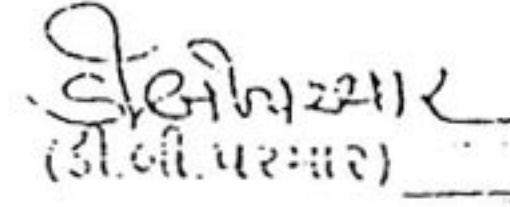 ડીબીપરમાર
(ડી.બી.પરમાર)